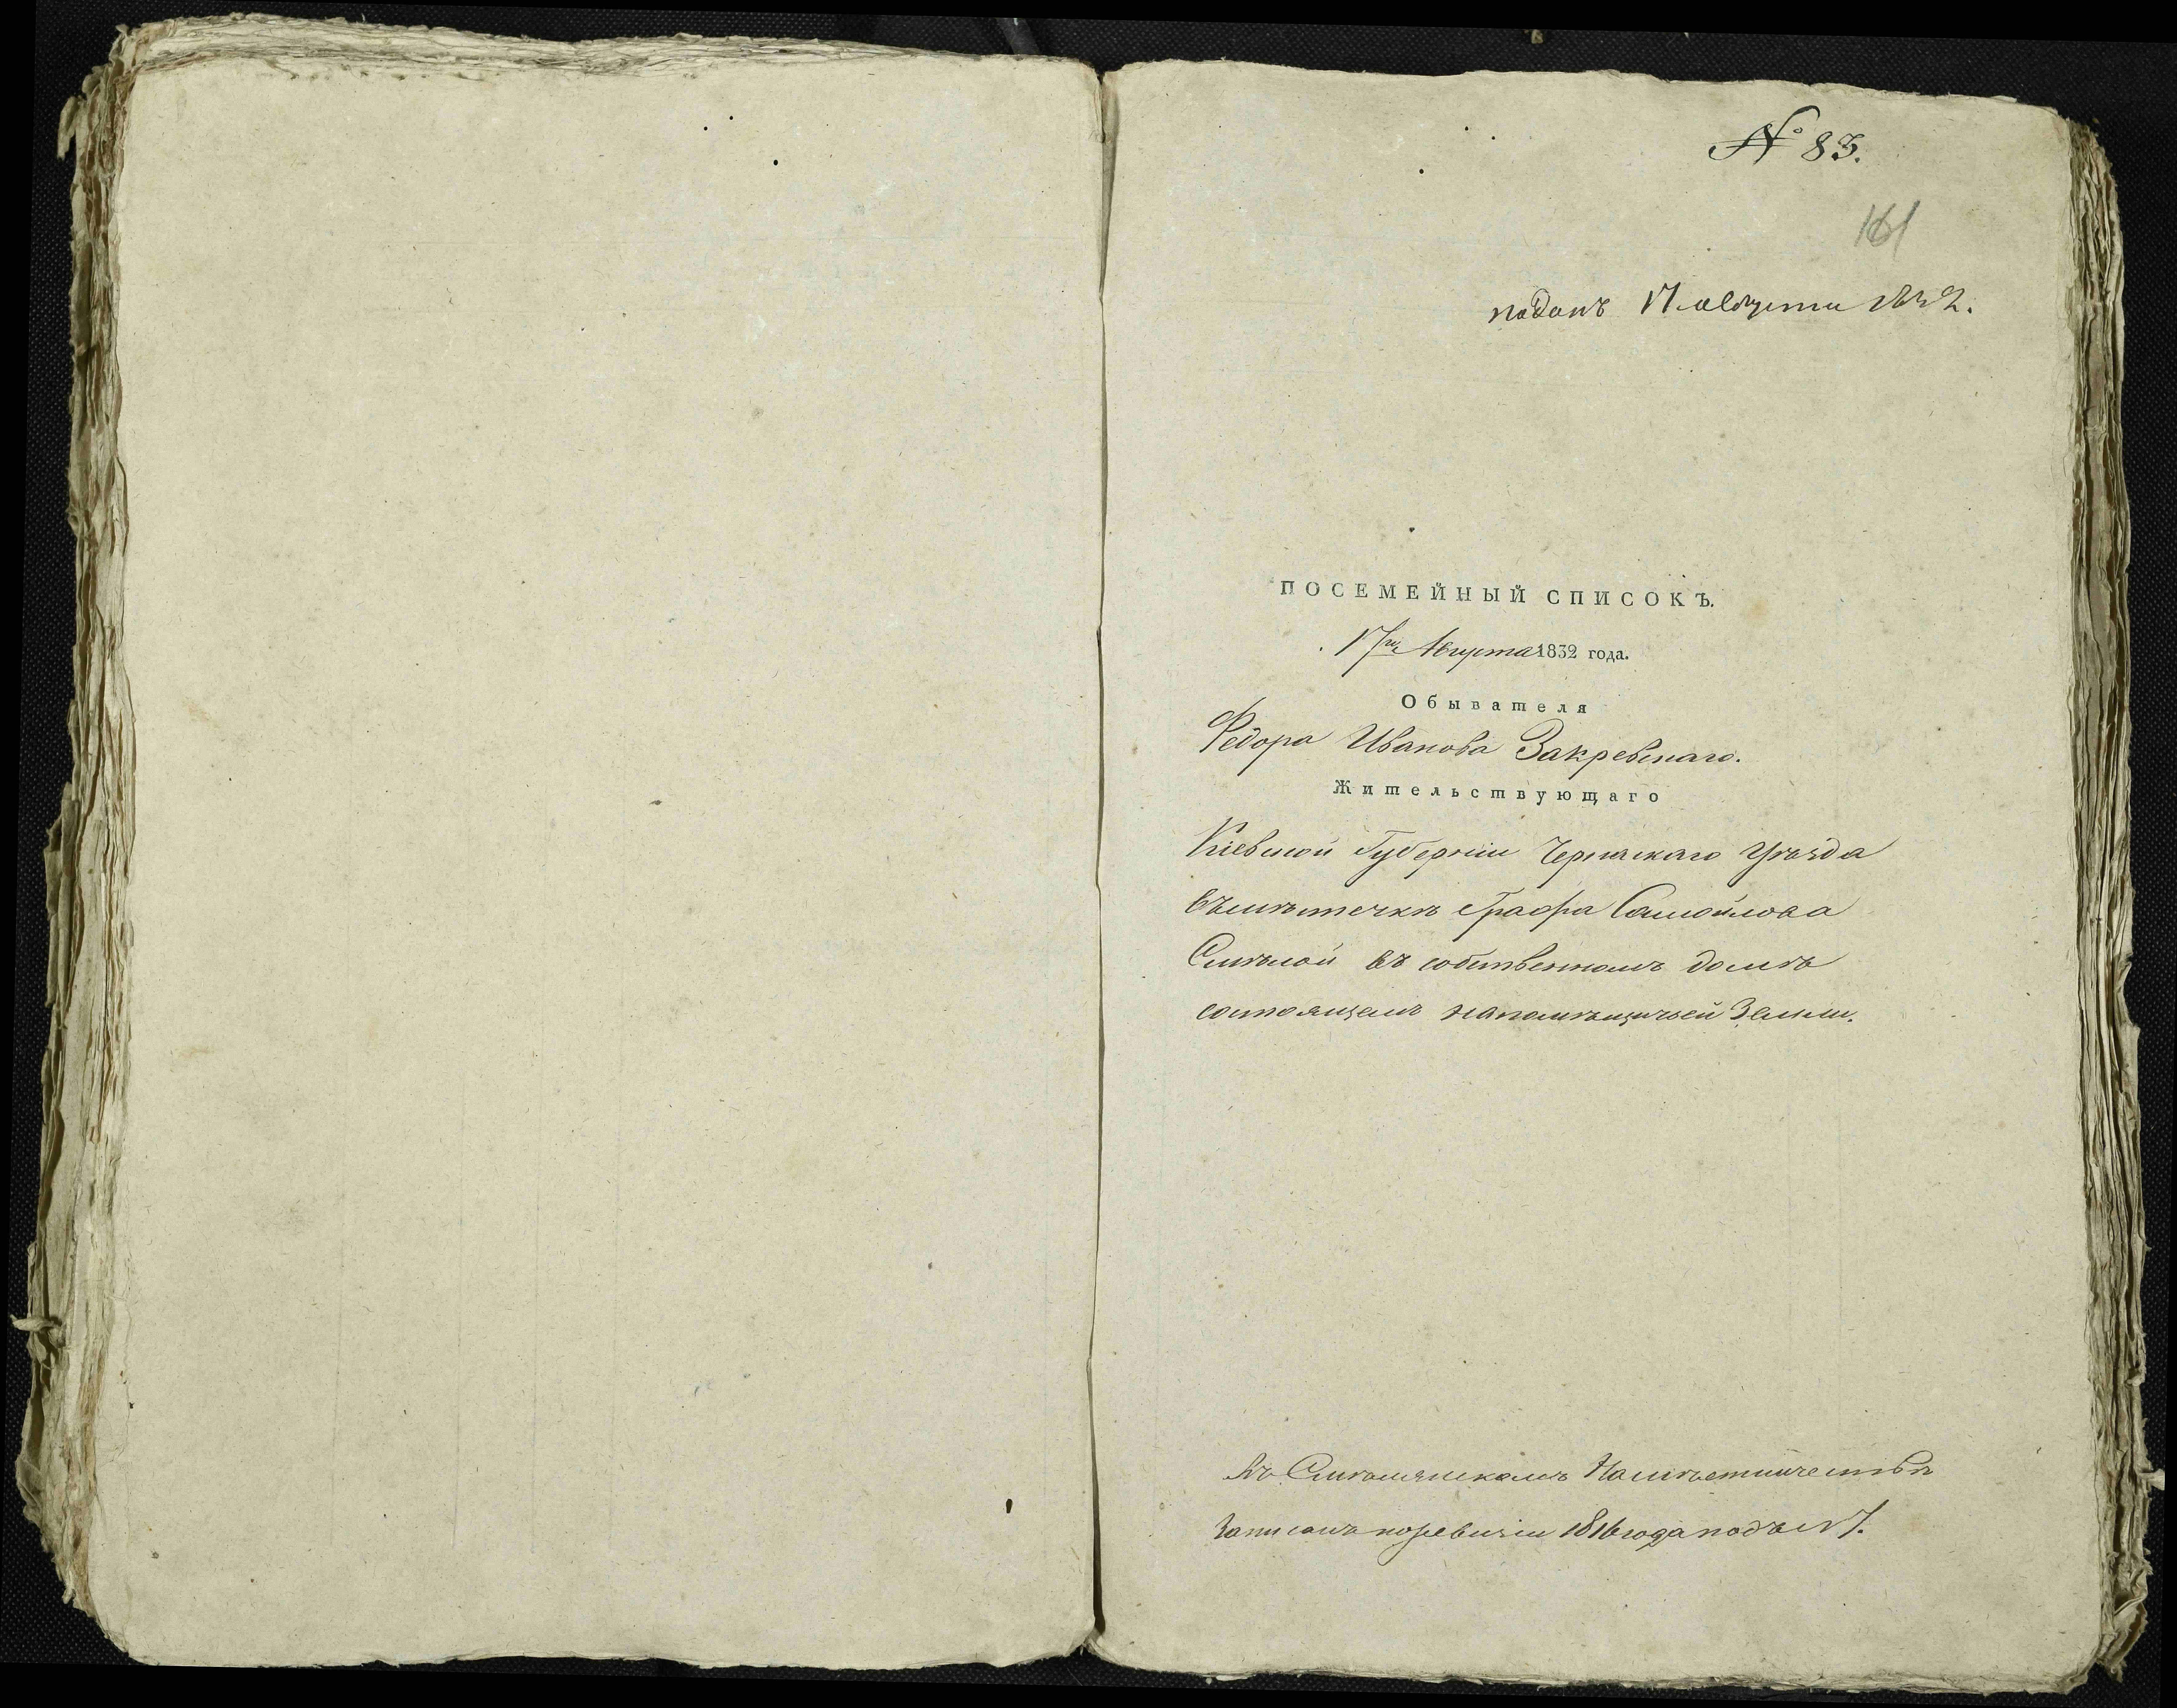 № 83.
161
поданъ 17 августа 1832.
ПОСЕМЕЙНЫЙ СПИСОКЪ.
17го Августа 1832 года.
Обывателя
Федора Иванова Закревскаго.
Жительствующаго
Кіевской Губерніи Черкаскаго Уѣзда
въ мѣстечкѣ Графа Самойлова
Смѣлой въ собственномъ домѣ
состоящемъ на помѣщичьей Земли.
Въ Смѣлянскомъ Намѣстничествѣ
Записанъ по ревизіи 1816 года подъ № 7.